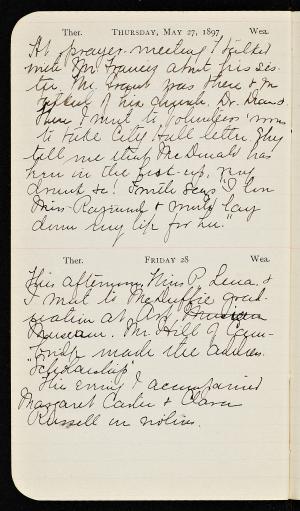 Ther. THURSDAY, MAY 27, 1897 Wea.
At prayer-meeting I talked
with Mr Francis about his sis-
ter. Mr. was there & Mr
of his church. Dr. Evans
there I went to Volunteers' rooms
to take City Hall letter. They
tell me that McDonald has
been in the up, very
drunk &c! Smith says "I love
Miss Raymond & would lay
down my life for her."
Ther. FRIDAY 28 Wea.
This afternoon, Miss P, Lena, &
I went to McDuffie grad-
uation at Art Museum
Museum. Mr. Hill of Cam-
bridge made the address.
"Scholarship"
This evening I accompanied
Margaret Carter & Clara
Russell in violins.